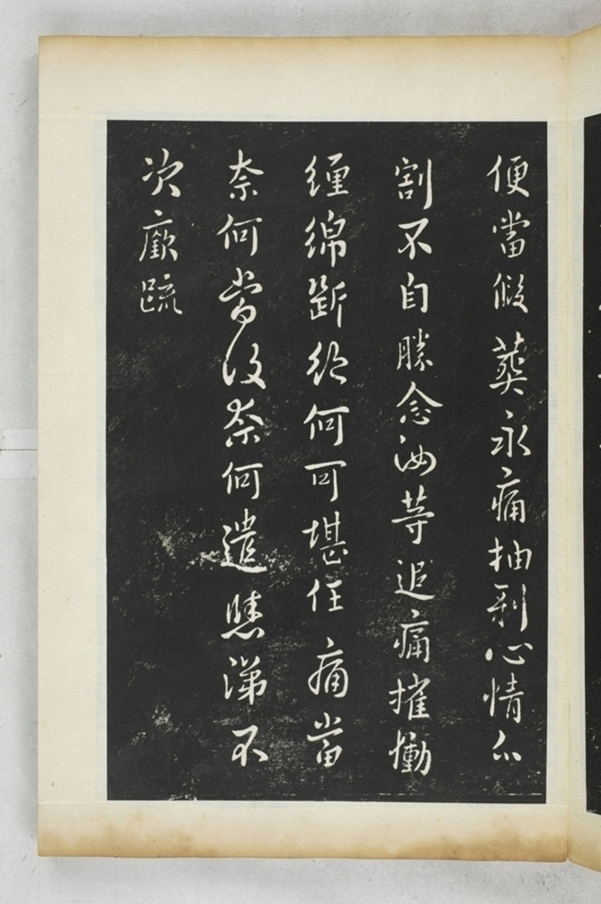 便當假葬永痛抽剥心情分
割不自勝念汝等追痛摧慟
纏綿斷絕何可堪任痛當
奈何當復奈何遣涕不
次廞疏